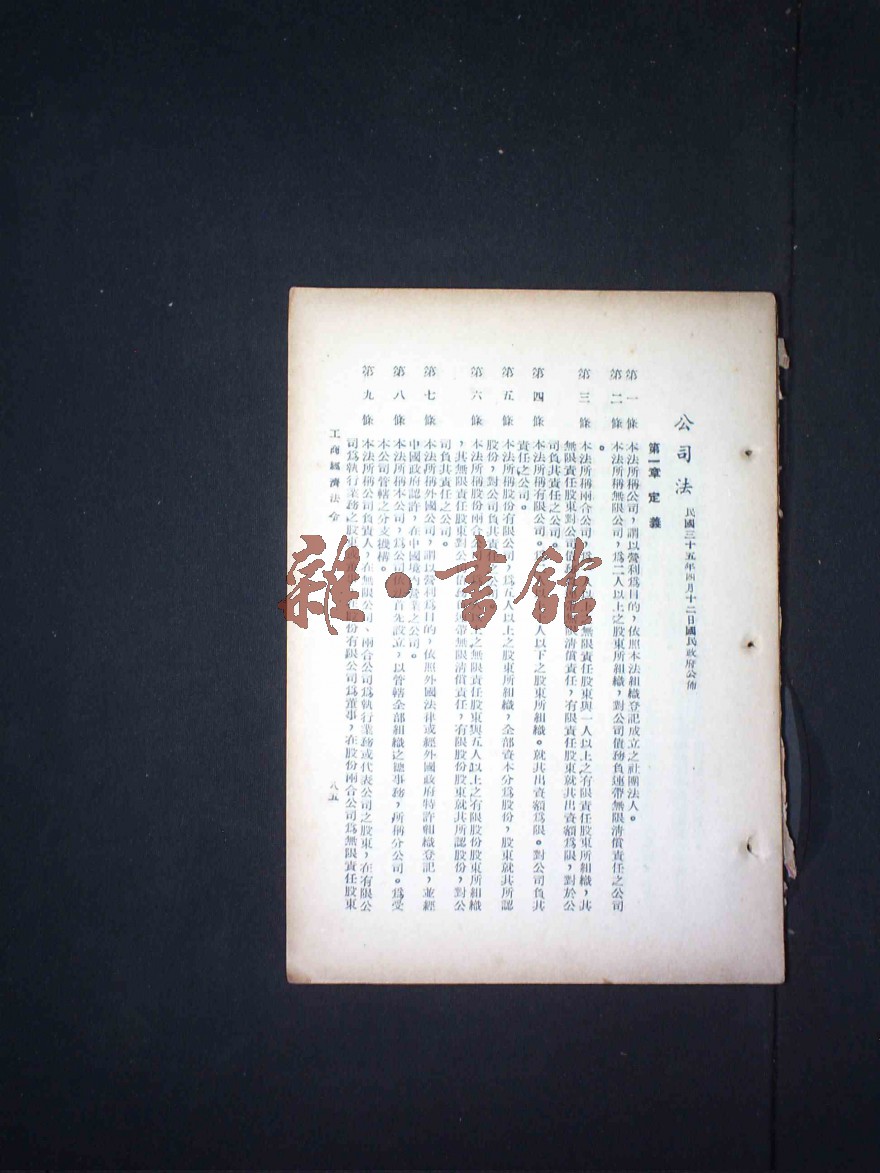 公司法 民國三十五年四月十二日國民政府公佈
第一章 定義
第一條 本法所稱公司，謂以營利爲目的，依照本法組織登記成立之社團法人。
第二條 本法所稱無限公司，爲二人以上之股東所組織，對公司債務負連帶無限淸償責任之公司
。
第三條 本法所稱兩合公司，無限責任股東與一人以上之有限責任股東所組織，其
無限責任股東對公司債務淸償責任，有限責任股東就其出資額爲限，對於公
司負其責任之公司。
第四條 本法所稱有限公司。人以下之股東所組織。就其出資額爲限。對公司負其
責任之公司。
第五條 本法所稱股份有限公司，爲五人以上之股東所組織，全部資本分爲股份，股東就其所認
股份，對公司負其責任之公司
第六條 本法所稱股份兩合公司之無限責任股東與五人以上之有限股份股東所組織
，其無限責任股東對公司債務連帶無限淸償責任，有限股份股東就其所認股份，對公
司負其責任之公司。
第七條 本法所稱外國公司，謂以營利爲目的，依照外國法律或經外國政府特許組織登記，並經
中國政府認許，在中國境營業之公司。
第八條 本法所稱本公司，爲公司依法首先設立，以管轄全部組織之總事務，所稱分公司。爲受
本公司管轄之分支機構。
第九條 本法所稱公司負責人，在無限公司、兩合公司爲執行業務或代表公司之股東，在有限公
司爲執行業務之股東份有限公司爲董事，在股份兩合公司爲無限責任股東
工商經濟法令 八五
雜·書館